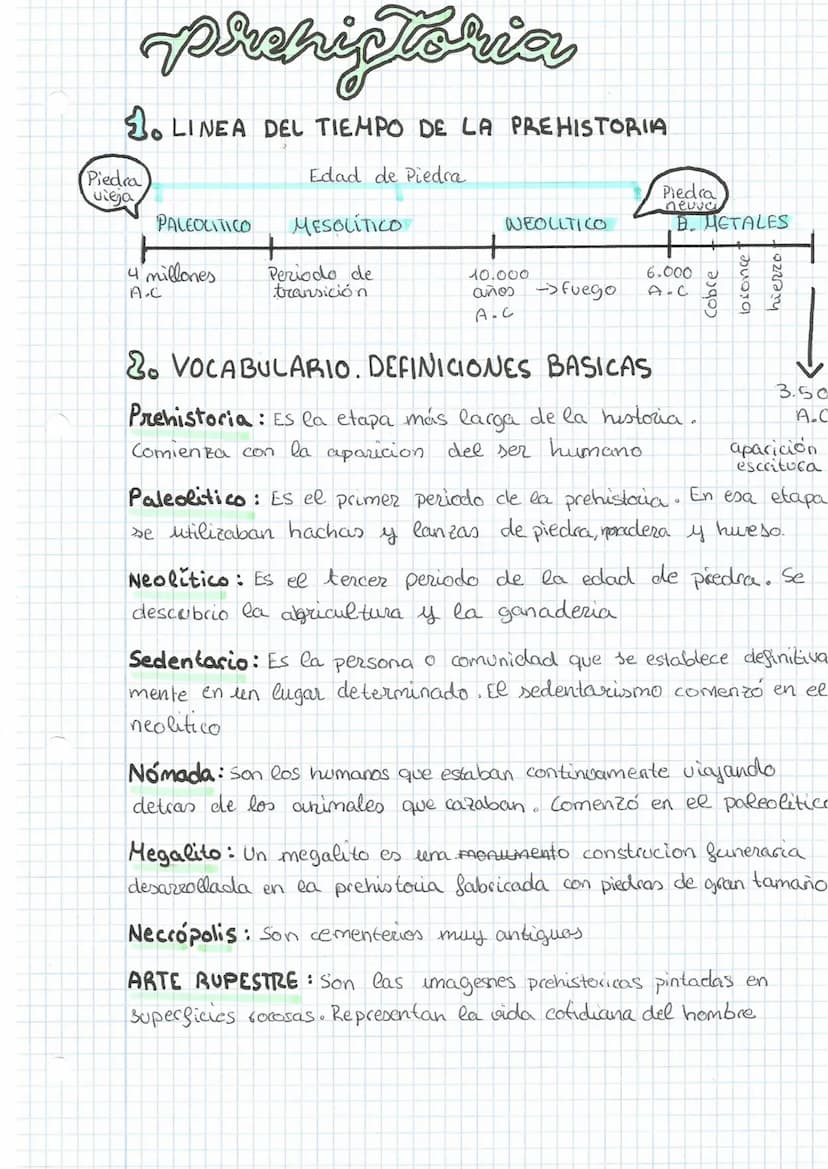 prehistoria
1. LINEA DEL TIEMPO DE LA PREHISTORIA
Piedra vieja
Edad de Piedra
Piedra neuva
PALEOLITICO MESOLÍTICO NEOLITICO B. METALES
4 millones A.C
Periodo de transición
10.000 años A.C
->fuego
6.000 A.C
Cobre
bronce
hierro
3.50
A.C
aparición
escritura
2. VOCABULARIO. DEFINICIONES BASICAS
Prehistoria: Es la etapa más larga de la historia.
Comienza con la aparicion del ser humano
Paleolitico: Es el primer periodo de la prehistoria. En esa etapa
se utilizaban hachas y lanzas de piedra, madera y hueso.
Neolítico: Es el tercer periodo de la edad de piedra. Se
descubrio la agricultura y la ganaderia
Sedentario: Es la persona o comunidad que se establece definitiva
mente en un lugar determinado. El sedentarismo comenzó en el
neolitico
Nómada: Son los humanos que estaban continuamente viajando
detras de los animales que cazaban. Comenzó en el paleolitico
Megalito: Un megalito es una monumento construcion funeraria
desarrollada en la prehistoria fabricada con piedras de gran tamaño
Necrópolis: Son cementerios muy antiguos
ARTE RUPESTRE: Son las imagesnes prehistoricas pintadas en
superficies rocosas. Representan la vida cotidiana del hombre